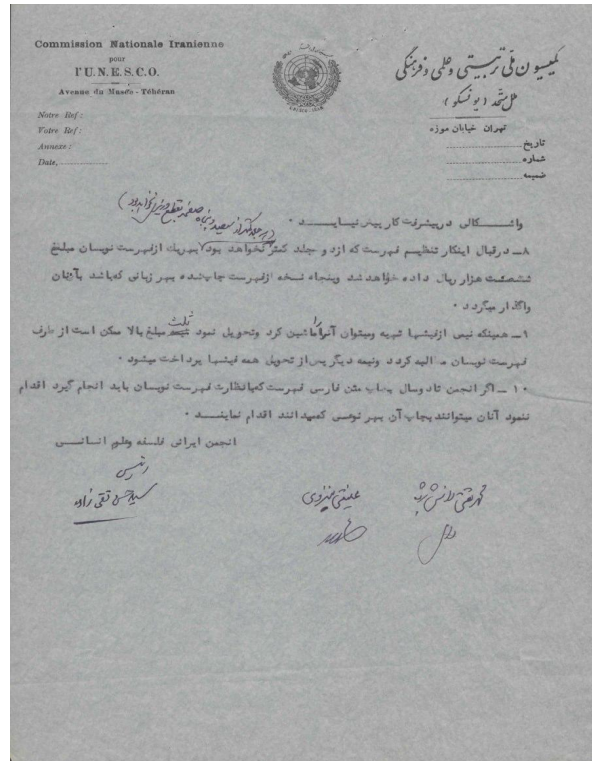 Commission Nationale Iranienne
pour
l'U.N.E.S.C.O.
Avenue du Musée - Téhéran
Notre Ref:
Votre Ref:
Annexe:
Date,
کمیسیون ملی تربیتی و علمی و فرهنگی
ملل متحد (یونسکو)
تهران خیابان موزه
تاریخ
شماره
ضمیمه
(هر جلد کمتر از سیصد و پنجاه صفحه بقطع وزیری نخواهد بود)
واشکالی در پیشرفت کار پیش نیاید ۰
۸ــ در قبال اینکار تنظیم فهرست که از دو جلد کمتر نخواهد بود بهریک از فهرست نویسان مبلغ
شصت هزار ریال داده خواهد شد و پنجاه نسخه از فهرست چاپ شده بهر زبانی که باشد بآنان
واگذار میگردد ۰
۹ــ همینکه نیمی از فیشها تهیه و میتوان آنرا ماشین کرد و تحویل نمود ثلث مبلغ بالا ممکن است از طرف
فهرست نویسان مطالبه گردد و نیمه دیگر پس از تحویل همه فیشها پرداخت میشود ۰
۱۰ــ اگر انجمن تا دو سال بچاپ متن فارسی فهرست که با نظارت فهرست نویسان باید انجام گیرد اقدام
ننمود آنان میتوانند بچاپ آن بهر نوعی که میدانند اقدام نمایند ۰
انجمن ایرانی فلسفه و علوم انسانی
رئیس
سید حسن تقی زاده
علینقی منزوی
محمد تقی دانش پژوه